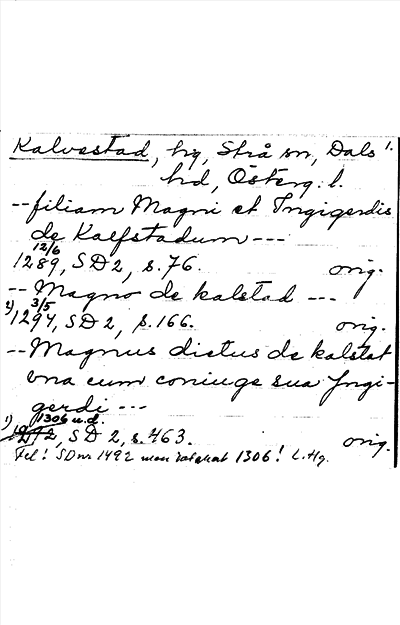 Kalvestad, hg, Strå sn, Dals 1.
hd, Österg. l.
-- filiam Magni et Ingigerdis
de Kaelfstadum ---
12/6
1289, SD 2, s. 76. orig.
-- Magno de kalstad ---
3/5
2) 1294, SD 2, s. 166. orig.
-- Magnus dictus de kalstat
vna cum coniuge sua Jngi-
gerdi ---
1306 u.d.
1) 1292, SD 2, s. 463. orig.
Fel! SD nr 1492 men 1306! L. Hg.